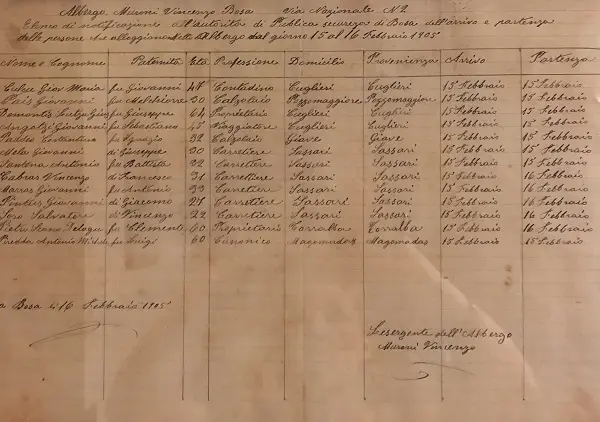 Albergo Muroni Vincenzo Bosa Via Nazionale N2
Elenco di notificazione All'autorità di Pubblica securezza di Bosa dell'arrivo e partenza
delle persone che alloggiono nello Albergo dal giorno 15 al 16 Febbraio 1905
Nome e Cognome Paternità Eta Professione Domicilio Provenienza Arrivo Partenza
Giov Maria fu Giovanni 48 Contadino Cuglieri Cuglieri 15 Febbraio 15 Febbraio
Pais Giovanni fu Melchiorre 50 Calzolaio Pozzomaggiore Pozzomaggiore 15 Febbraio 15 Febbraio
Demontis fu Giuseppe 64 Proprietario Cuglieri Cuglieri 15 Febbraio 15 Febbraio
Giovanni fu Sebastiano Viaggiatore Cuglieri Cuglieri 15 Febbraio 15 Febbraio
Costantino fu Ignazio 32 Calzolaio Giave Giave 15 Febbraio 15 Febbraio
Mele Giovanni di Giuseppe 20 Carretiere Sassari Sassari 15 Febbraio 15 Febbraio
Santona Antonio fu Battista 32 Carretiere Sassari Sassari 15 Febbraio 15 Febbraio
Cabras Vincenzo di Francesco 31 Carrettiere Sassari Sassari 15 Febbraio 16 Febbraio
Marras Giovanni fu Antonio 33 Carretiere Sassari Sassari 15 Febbraio 16 Febbraio
Giovanni di Giacomo 27 Carretiere Sassari Sassari 15 Febbraio 16 Febbraio
Soro Salvatore di Vincenzo 22 Carretiere Sassari Sassari 15 Febbraio 16 Febbraio
fu Clemente 60 Proprietario Torralba Torralba 15 Febbraio 16 Febbraio
Piredda Antonio Michele fu Luigi 60 Canonico Magomadas Magomadas 15 Febbraio 15 Febbraio
a Bosa li 16 Febbraio 1905
L'esergente dell'Albergo
Muroni Vincenzo